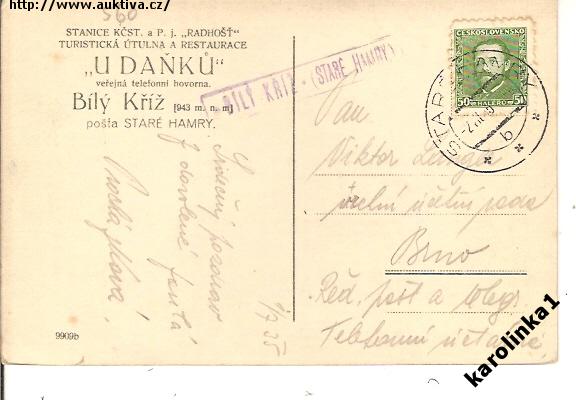 http://www.auktiva.cz/
560
STANICE KČST. a P. j. „RADHOŠŤ"
TURISTICKÁ ÚTULNA A RESTAURACE
„U DAŇKŮ"
veřejná telefonní hovorna.
Bílý Kříž [943 m. n. m]
pošta STARÉ HAMRY.
BÍLÝ KŘÍŽ - (STARÉ HAMRY)
ČESKOSLOVENSKO
50 HALÉŘŮ 50
STARÉ HAMRY
b
Srdečný pozdrav
z dovolené
1/7 35
Pan
Viktor
účetní
Brno
Řed. pošt a telegr.
Telefonní
9909b
karolinka1